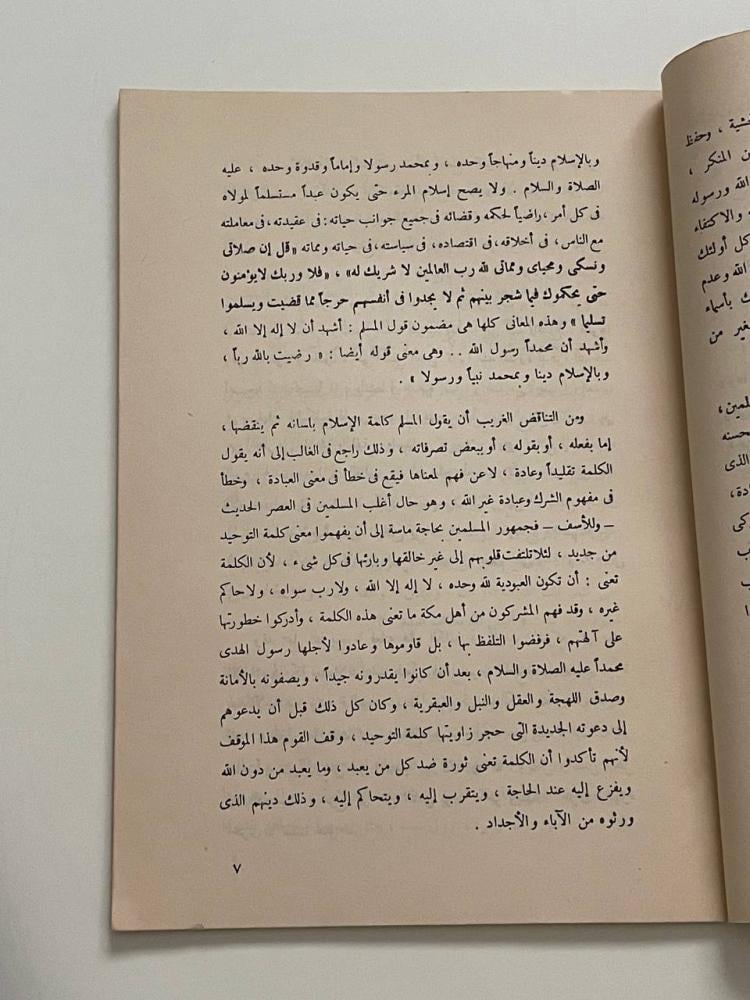 وبالإسلام ديناً ومنهاجاً وحده ، وبمحمد رسولا وإماماً وقدوة وحده ، عليه
الصلاة والسلام . ولا يصح إسلام المرء حتى يكون عبداً مستسلماً لمولاه
فى كل أمر ، راضياً لحكمه وقضائه فى جميع جوانب حياته : فى عقيدته ، فى معاملته
مع الناس ، فى أخلاقه ، فى اقتصاده ، فى سياسته ، فى حياته ومماته « قل إن صلاتى
ونسكى ومحياى ومماتى لله رب العالمين لا شريك له » ، « فلا وربك لايؤمنون
حتى يحكموك فيما شجر بينهم ثم لا يجدوا فى أنفسهم حرجاً مما قضيت ويسلموا
تسليما » وهذه المعانى كلها هى مضمون قول المسلم : أشهد أن لا إله إلا الله ،
وأشهد أن محمداً رسول الله .. وهى معنى قوله أيضا : « رضيت بالله رباً ،
وبالإسلام دينا وبمحمد نبياً ورسولا » .
ومن التناقض الغريب أن يقول المسلم كلمة الإسلام بلسانه ثم ينقضها ،
إما بفعله ، أو بقوله ، أو ببعض تصرفاته ، وذلك راجع فى الغالب إلى أنه يقول
الكلمة تقليداً وعادة ، لاعن فهم لمعناها فيقع فى خطأ فى معنى العبادة ، وخطأ
فى مفهوم الشرك وعبادة غير الله ، وهو حال أغلب المسلمين فى العصر الحديث
– وللأسف – فجمهور المسلمين بحاجة ماسة إلى أن يفهموا معنى كلمة التوحيد
من جديد ، لئلا تلتفت قلوبهم إلى غير خالقها وبارئها فى كل شىء ، لأن الكلمة
تعنى : أن تكون العبودية لله وحده ، لا إله إلا الله ، ولارب سواه ، ولاحاكم
غيره ، وقد فهم المشركون من أهل مكة ما تعنى هذه الكلمة ، وأدركوا خطورتها
على آلهتهم ، فرفضوا التلفظ بها ، بل قاوموها وعادوا لأجلها رسول الهدى
محمداً عليه الصلاة والسلام ، بعد أن كانوا يقدرونه جيداً ، ويصفونه بالأمانة
وصدق اللهجة والعقل والنبل والعبقرية ، وكان كل ذلك قبل أن يدعوهم
إلى دعوته الجديدة التى حجر زاويتها كلمة التوحيد ، وقف القوم هذا الموقف
لأنهم تأكدوا أن الكلمة تعنى ثورة ضد كل من يعبد ، وما يعبد من دون الله
ويفزع إليه عند الحاجة ، ويتقرب إليه ، ويتحاكم إليه ، وذلك دينهم الذى
ورثوه من الآباء والأجداد .
٧
، وحفظ
المنكر ،
الله ورسوله
والاكتفاء
كل أولئك
الله وعدم
بأسماء
غير من
الذى